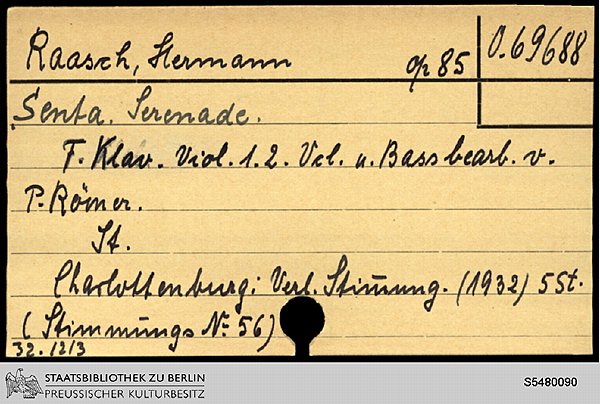 Raasch, Hermann op 85 O.69688
Senta. Serenade.
F. Klav. Viol. 1.2. Vcl. u. Bass bearb. v.
P. Römer.
St.
Charlottenburg: Verl. Stim̅ung. (1932) 5 St.
(Stimmungs № 56)
32. 1213
STAATSBIBLIOTHEK ZU BERLIN
PREUSSISCHER KULTURBESITZ
S5480090